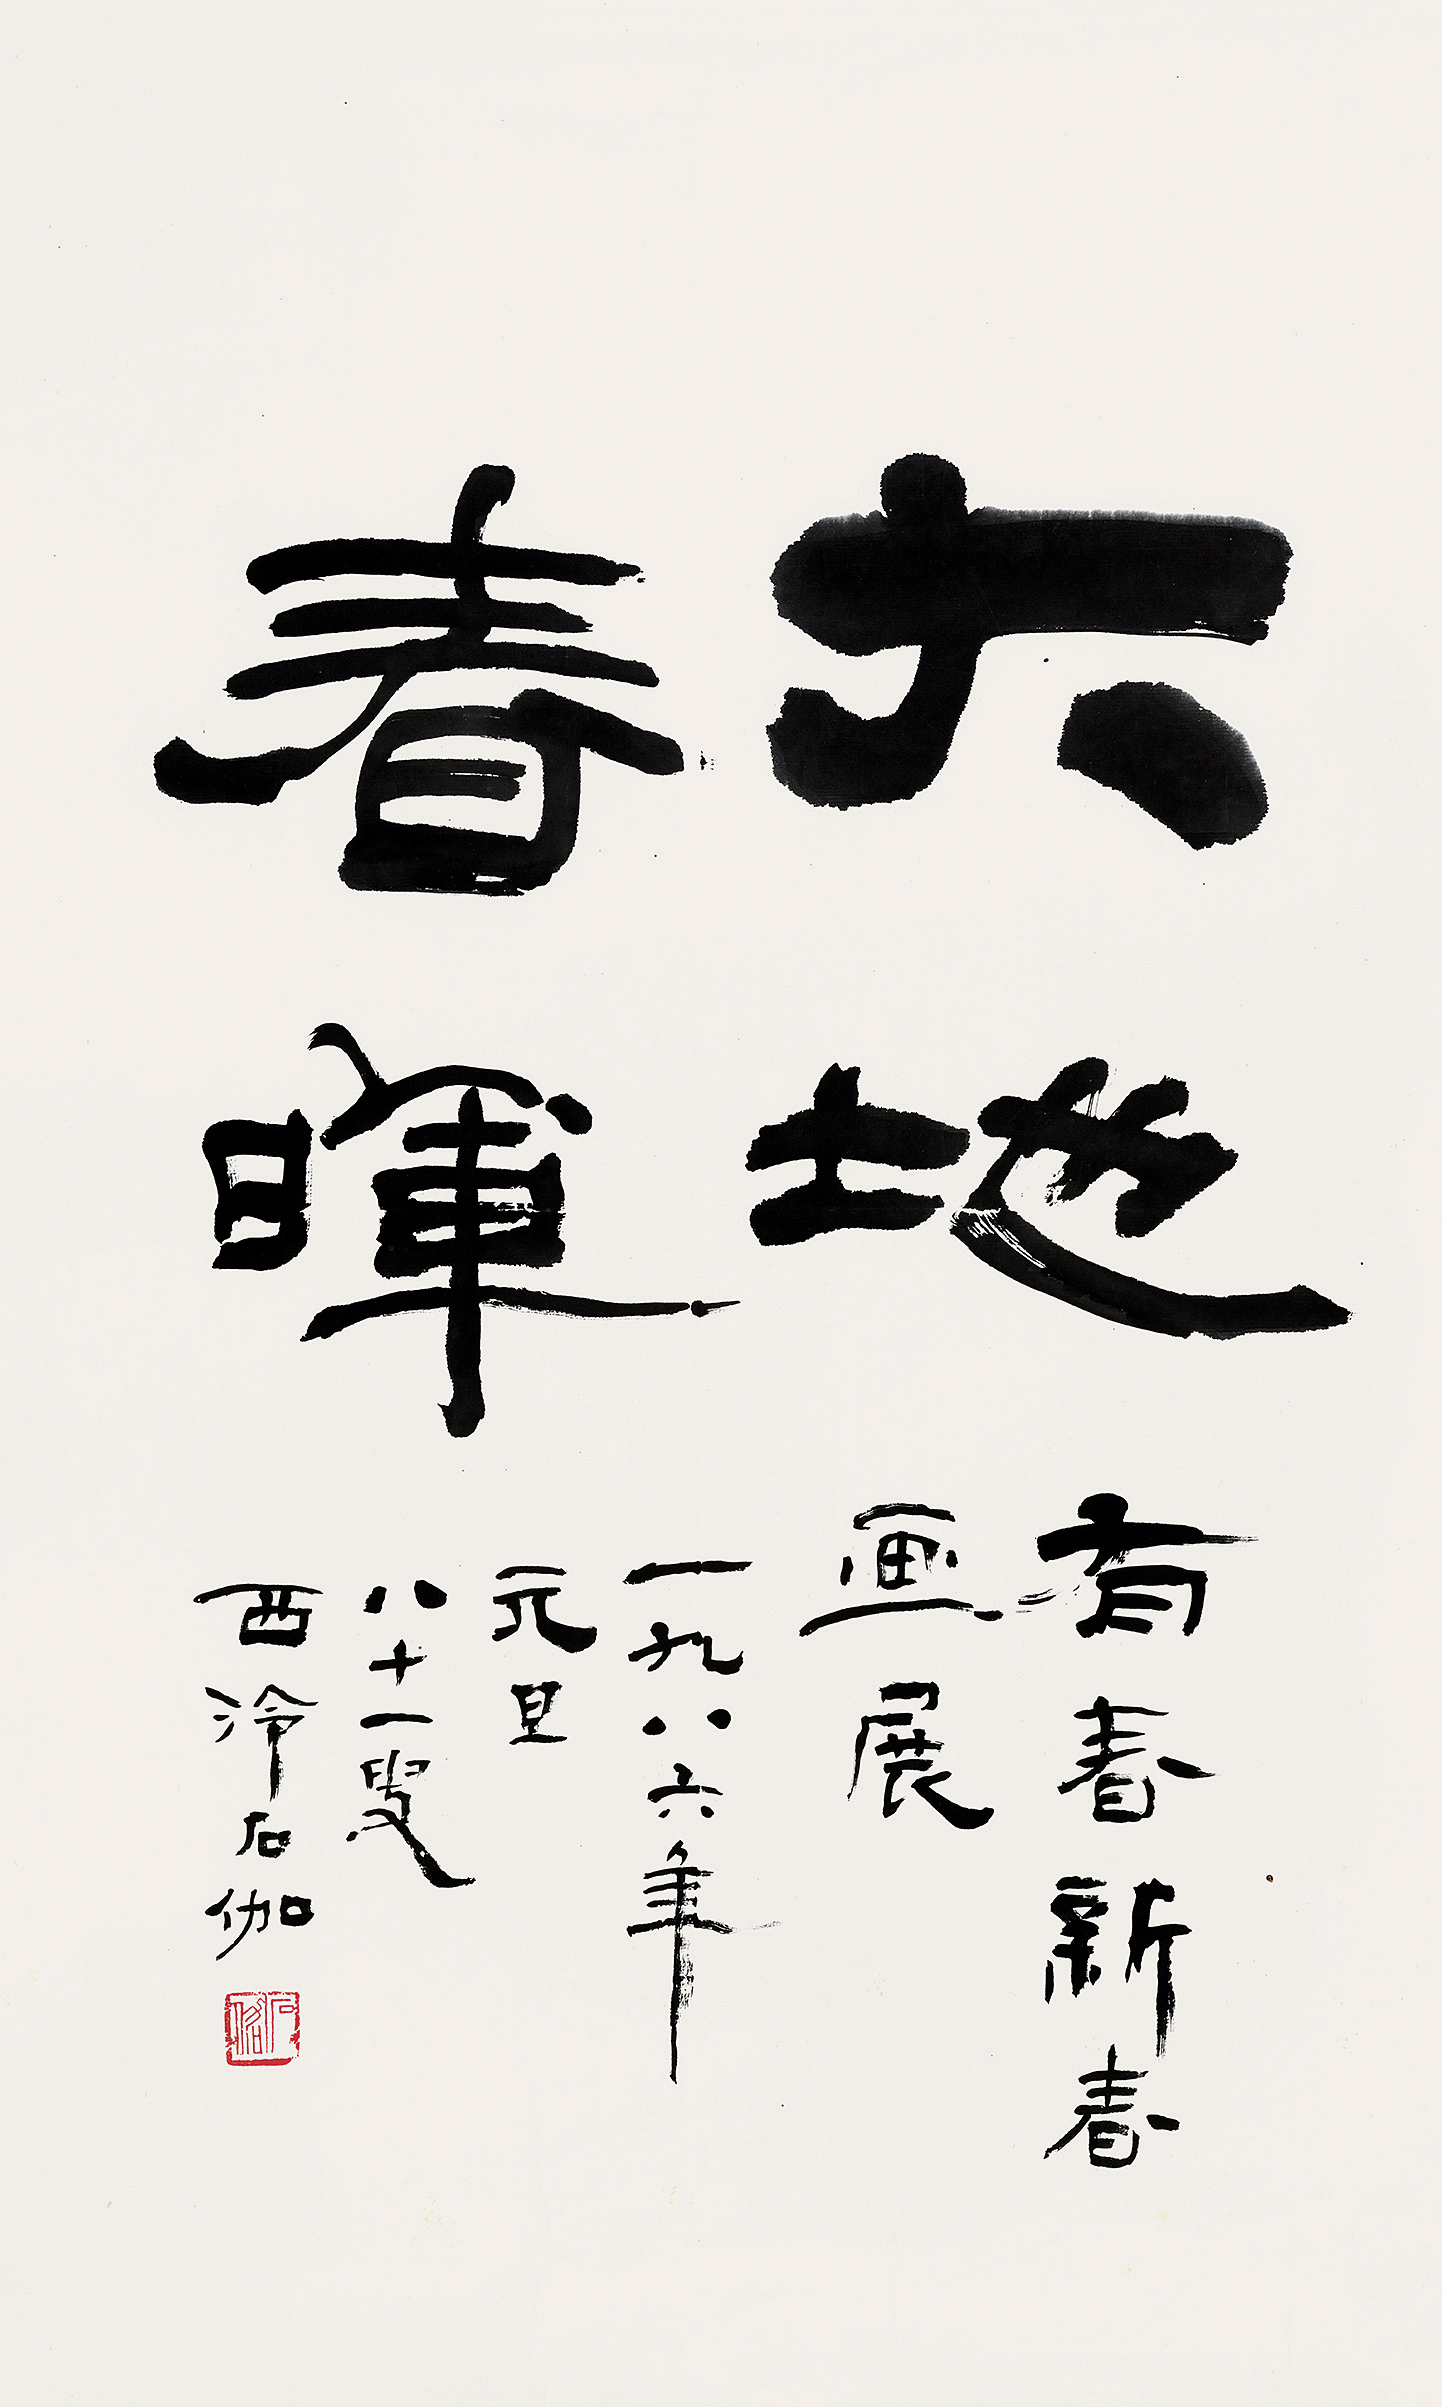 大地
春暉
有春新春
画展
一九八六年
元旦
八十一叟
西泠石伽
石伽